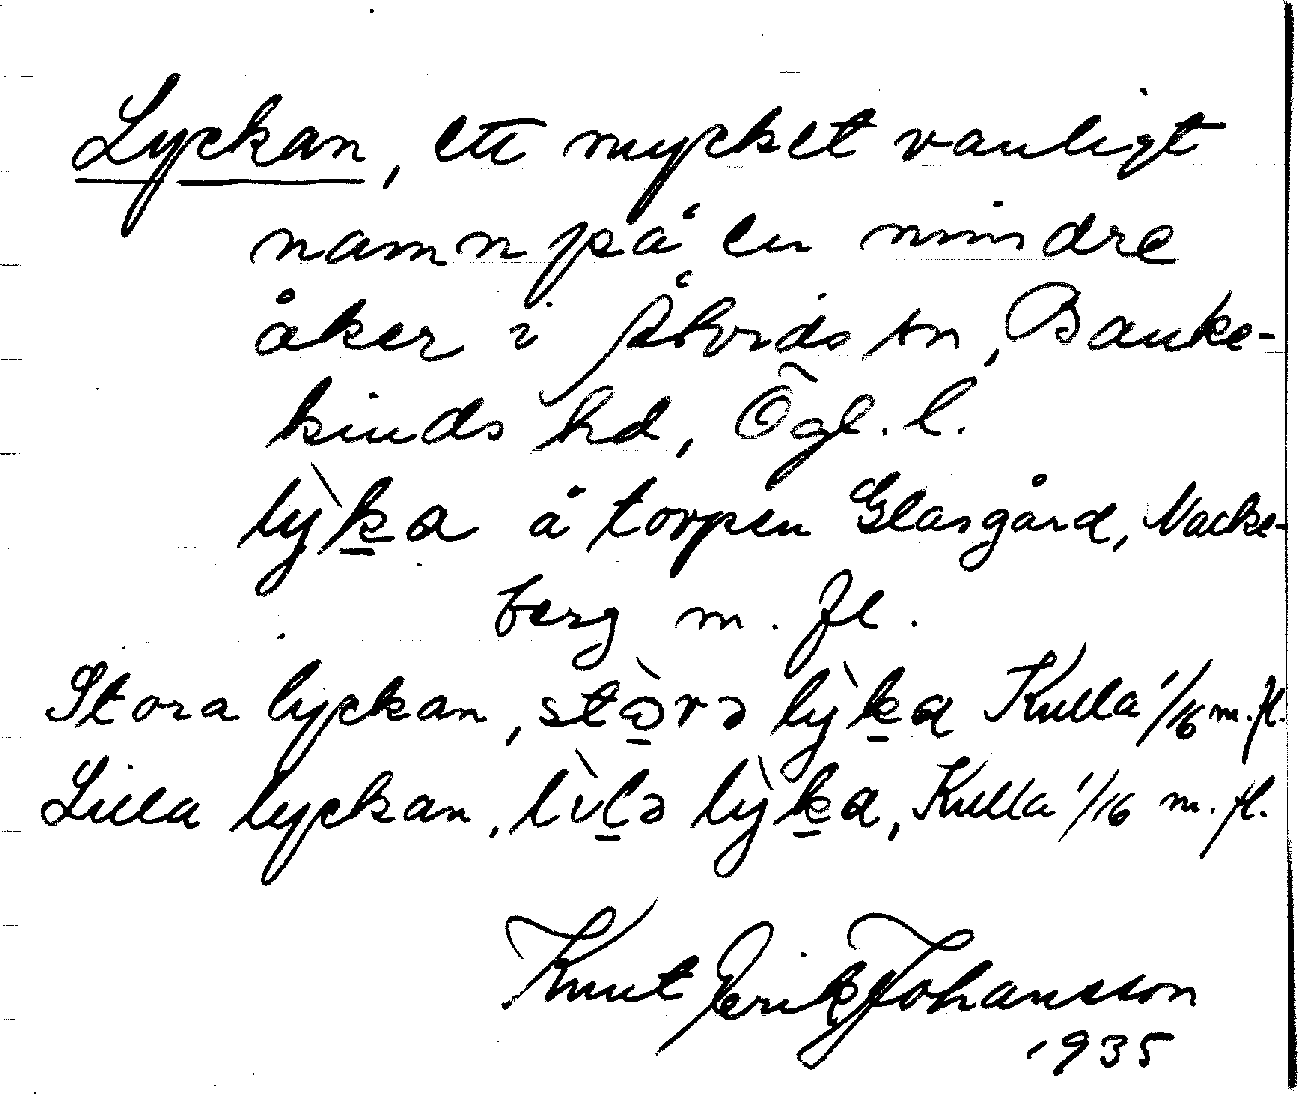 Lyckan, ett mycket vanligt
namn på en mindre
åker i Åtvids sn, Banke-
kinds hd, Ögl. l.
lỳk̲a å torpen Glasgård, Nacke-
berg m. fl.
Stora lyckan, stə̲̀rə lỳk̲a Kulla 1/16 m. fl.
Lilla lyckan, lìl̲ə lỳk̲a, Kulla 1/16 m. fl.
Knut Erik Johansson
1935